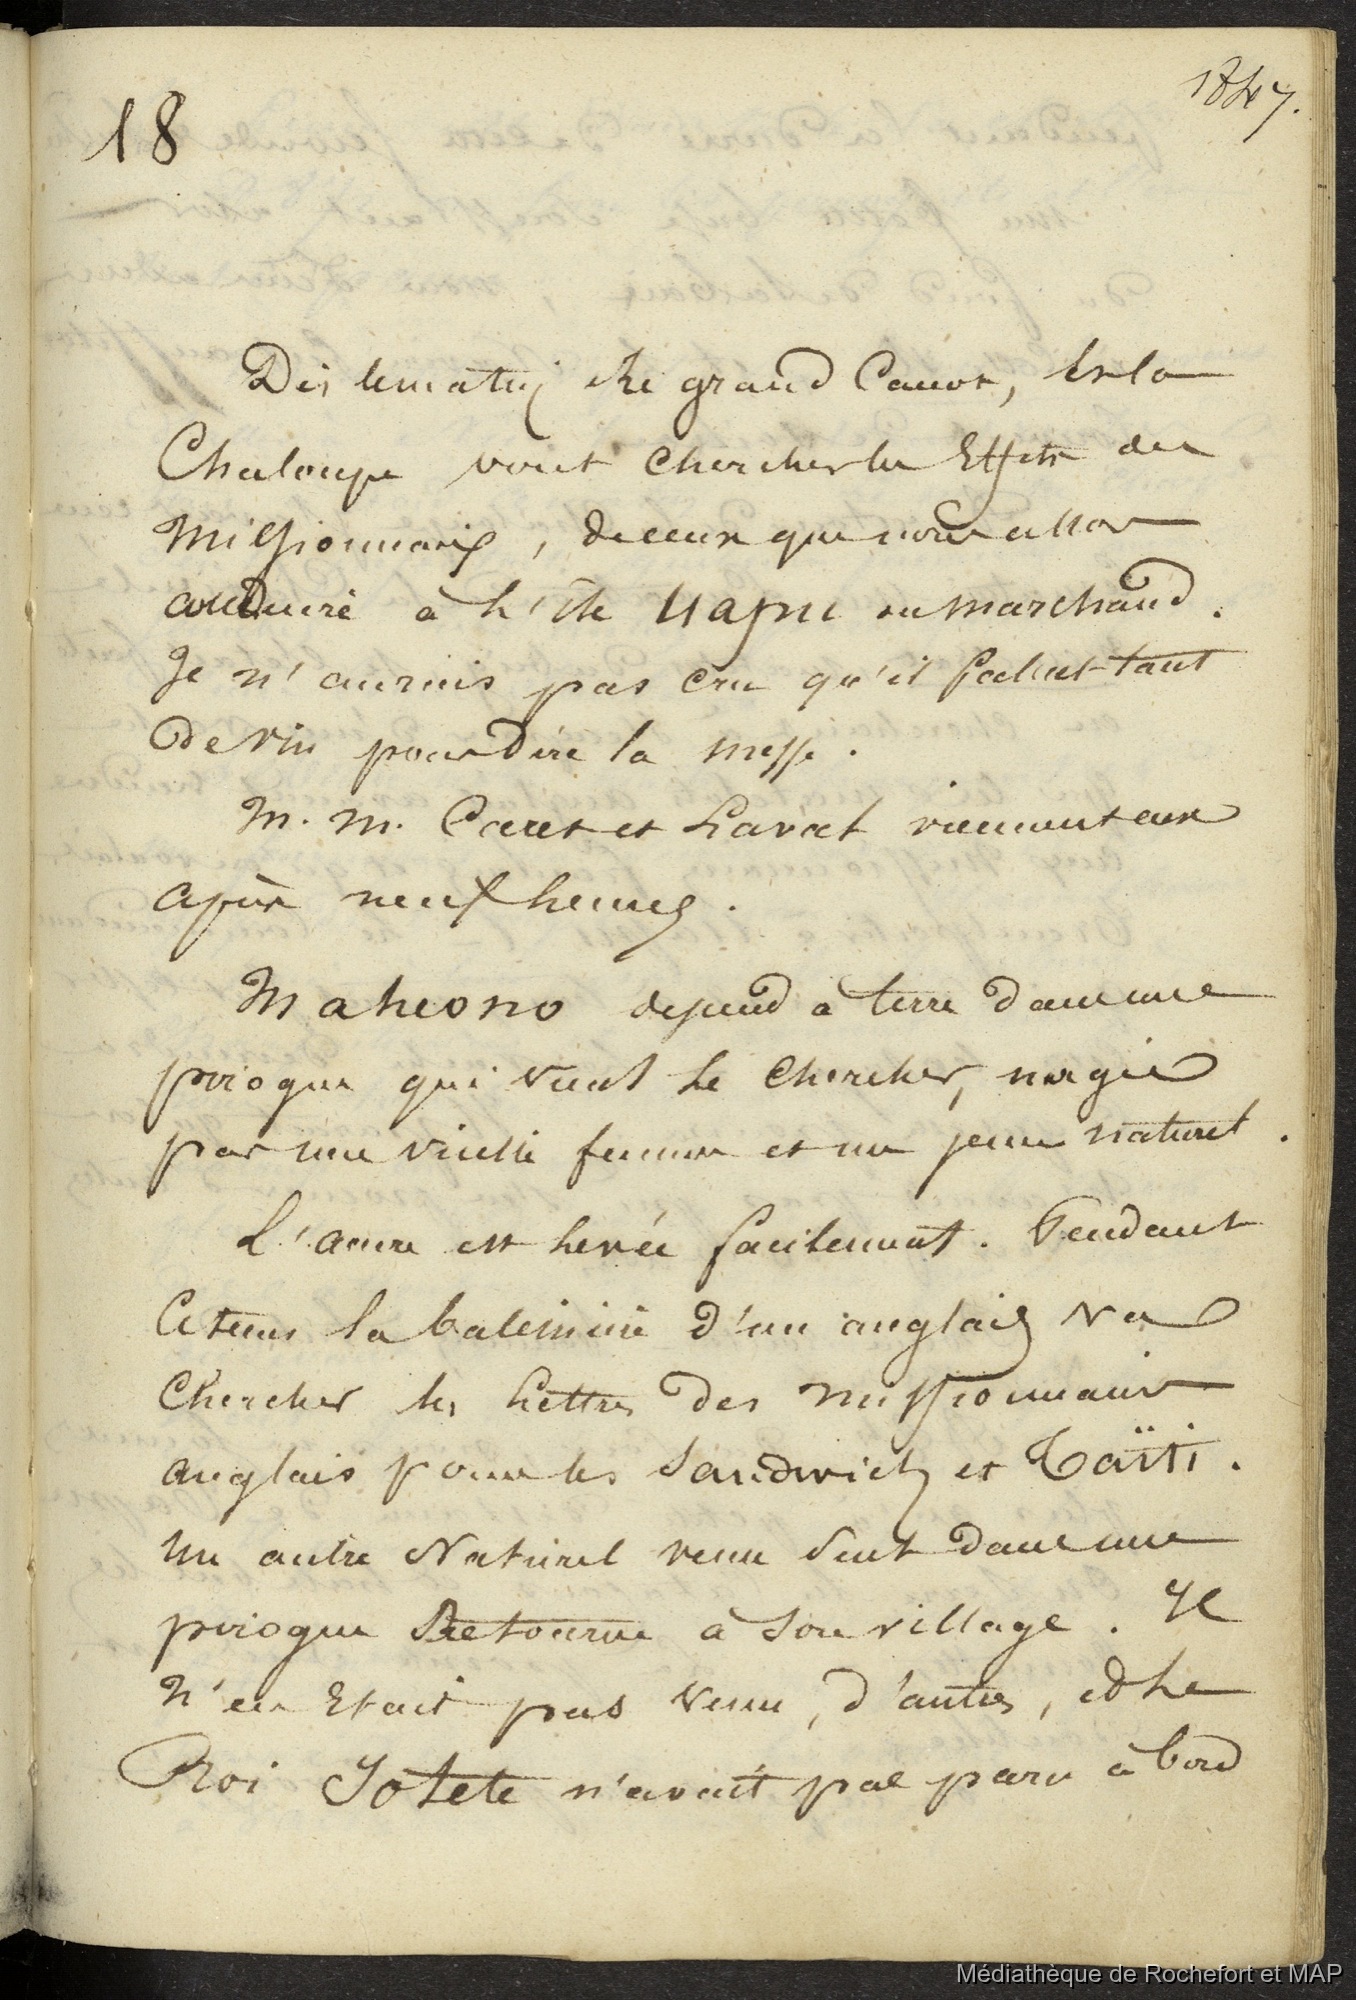 1847.
18
Dès le matin le grand Canot, et la
Chaloupe vont chercher les Effets des
Missionnaires, de ceux que nous allons
conduire à l'île Uapne ou marchand.
Je n'aurais pas cru qu'il fallut tant
de vin pour dire la messe.
M. M. Caret et Laval viennent eux
après neuf heures.
Maheono descend à terre dans une
pirogue qui vient le chercher, nagée
par une vieille femme et un jeune naturel.
L'ancre est levée facilement. Pendant
ce tems la baleinière d'un anglais va
Chercher les lettres des missionnaires
anglais pour les Sandwich et Taïti.
Un autre Naturel venu seul dans une
pirogue Retourne à son village. Il
n'en Etait pas venu, d'autres, et le
Roi Iotete n'avait pas paru à bord
Médiathèque de Rochefort et MAP